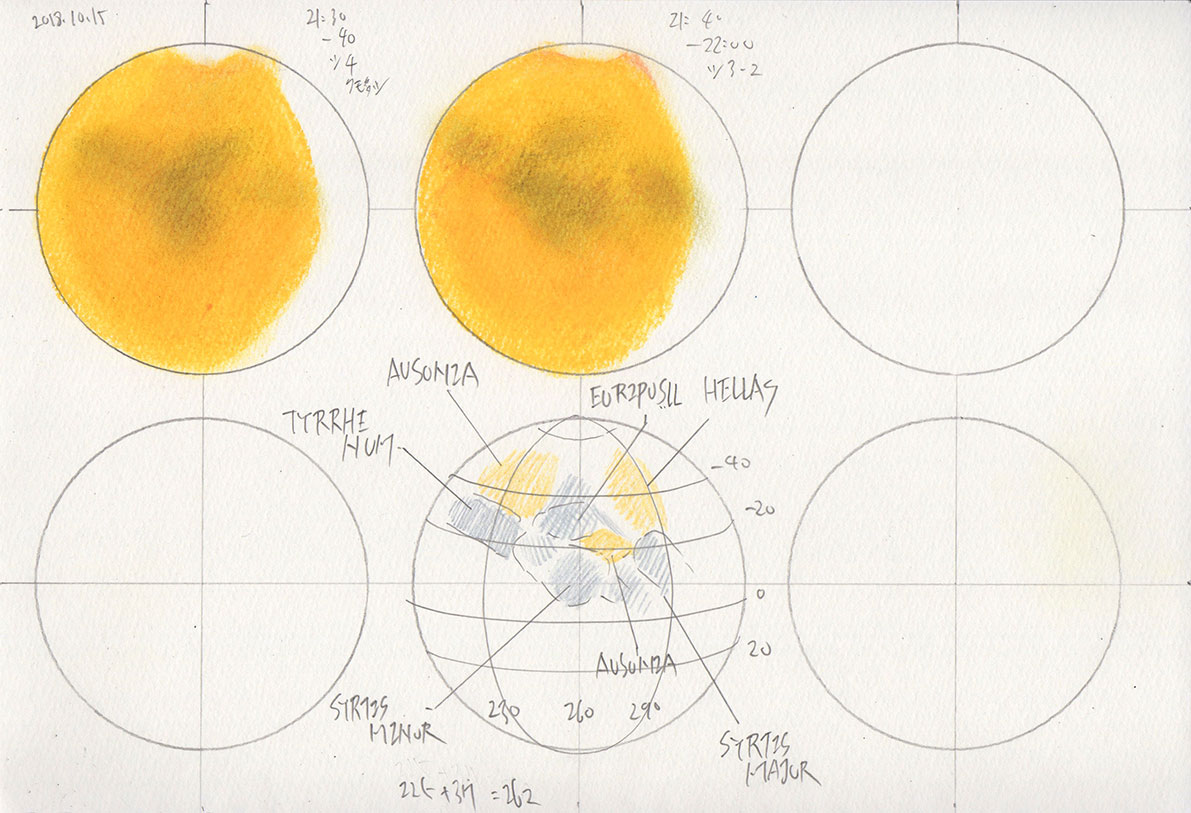 2018.10.15
21:30
-40
ツ4
21:40
-22:00
ツ3-2
AUSONIA
EURIPUS II
HELLAS
TYRRHE
NUM
-40
-20
0
20
AUSONIA
230
260
290
SYRTIS
MINOR
SYRTIS
MAJOR
=262